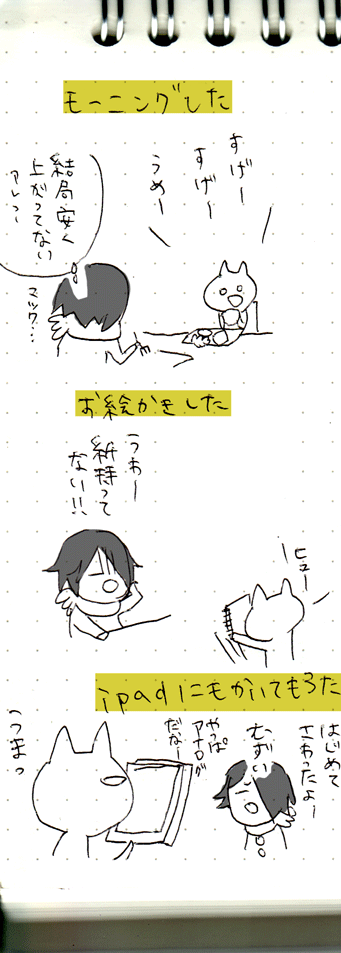 モーニングした
すげー
すげー
うめー
結局安く
上がってない
アレっ
マック…
お絵かきした
うわー
紙持って
ない!!
ヒュー
ipadにもかいてもろた
はじめて
さわったよー
むずい
やっぱ
アナログ
だなー
うまっ